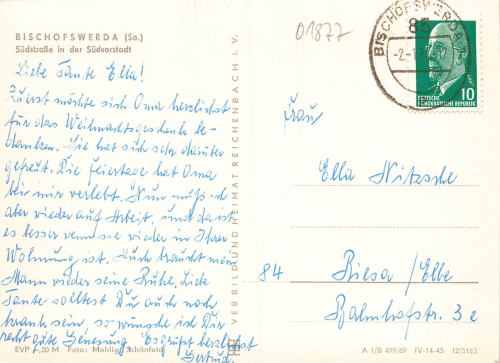 BISCHOFSWERDA (Sa.)
Südstraße in der Südvorstadt
Liebe Tante Ella!
Zuerst möchte sich Oma herzlichst
für das Weihnachtsgeschenk be-
danken. Sie hat sich sehr darüber
gefreut. Die Feiertage hat Oma
bei mir verlebt. Nun muß ich
aber wieder auf Arbeit, und da ist
es besser wenn sie wieder in Ihrer
Wohnung ist. Auch braucht mein
Mann wieder seine Ruhe. Liebe
Tante solltest Du auch noch
krank sein, so wünsche ich Dir
recht gute Genesung. Es grüßt herzlichst
Gertrud
EVP -,20 M Foto: Mehlig, Schönfeld
VEB BILD UND HEIMAT REICHENBACH I. V.
01877
BISCHOFSWERDA
85
DEUTSCHE
DEMOKRATISCHE REPUBLIK
10
Frau
Ella Nitzsche
84 Riesa/Elbe
Bahnhofstr. 3 e
A 1/B 499/69 IV-14-45 12/5163